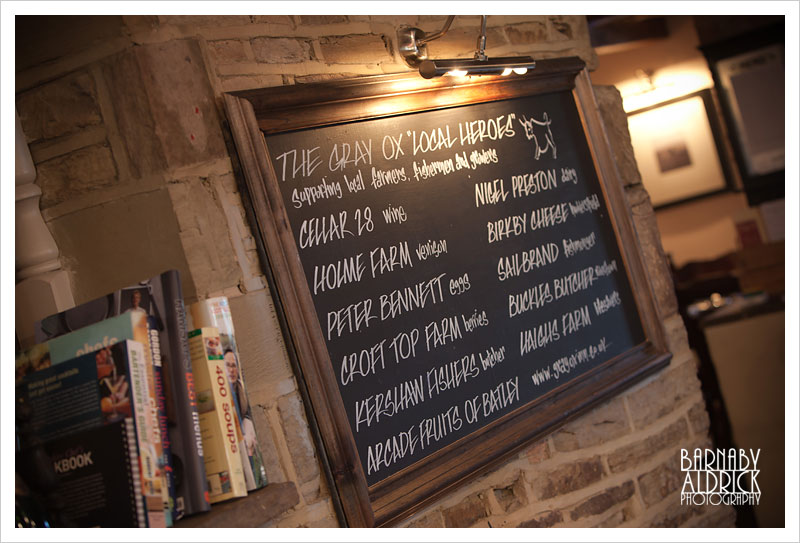 THE GRAY OX "LOCAL HEROES"
Supporting local farmers, fishermen and growers
CELLAR 28 wine
HOLME FARM venison
PETER BENNETT eggs
CROFT TOP FARM berries
KERSHAW FISHERS butcher
ARCADE FRUITS OF BATLEY
NIGEL PRESTON dairy
BIRKBY CHEESE huddersfield
SAILBRAND fishmonger
BUCKLES BUTCHER
HAIGHS FARM
400 SOUPS
KBOOK
BARNABY
ALDRICK
PHOTOGRAPHY